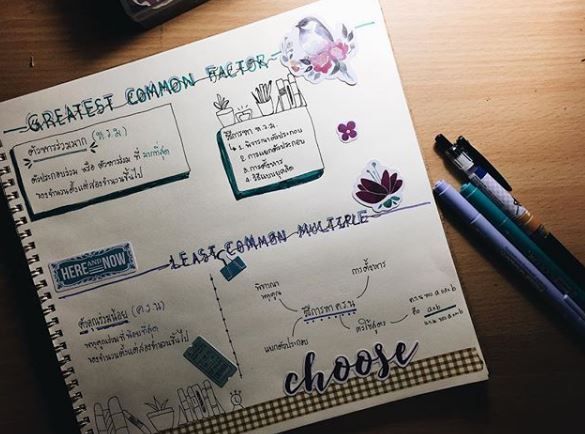 GREATEST COMMON FACTOR
ตัวหารร่วมมาก (ห.ร.ม)
ตัวประกอบร่วม หรือ ตัวหารร่วม ที่ มากที่สุด
ของจำนวนตั้งแต่สองจำนวนขึ้นไป
วิธีการหา ห.ร.ม.
1. พิจารณาตัวประกอบ
2. การแยกตัวประกอบ
3. การตั้งหาร
4. วิธีแบบยุคลิด
HERE AND NOW
LEAST COMMON MULTIPLE
ตัวคูณร่วมน้อย (ค.ร.น)
พหุคูณร่วมที่น้อยที่สุด
ของจำนวนตั้งแต่สองจำนวนขึ้นไป
พิจารณา
พหุคูณ
การตั้งหาร
วิธีการหา ค.ร.น
แยกตัวประกอบ
ใช้สูตร
คือ
choose